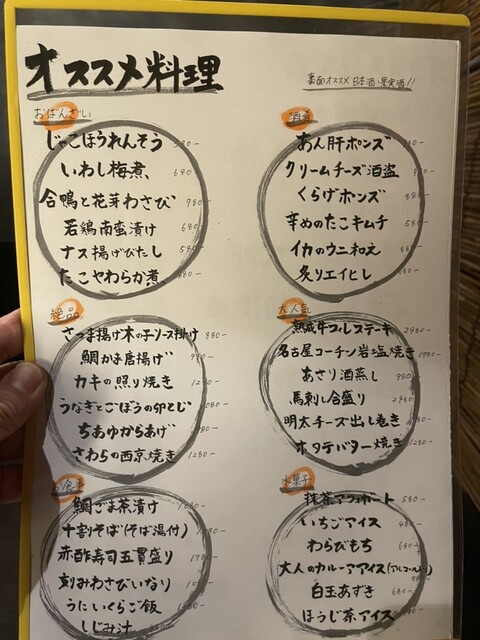 オススメ料理
裏面オススメ日本酒・果実酒!!
おばんざい
じゃこほうれんそう 580-
いわし梅煮、 680
合鴨と花芽わさび 780-
若鶏南蛮漬け 680-
ナス揚げびたし 580-
たこやわらか煮、 680-
あん肝ポンズ
クリームチーズ酒盗
くらげポンズ
辛めのたこキムチ
イカのウニ和え
炙りエイヒレ
絶品
さつま揚げ木の子ソース掛け 980-
鯛かま唐揚げ 980-
カキの照り焼き 1280-
うなぎとごぼうの卵とじ
ちあゆからあげ
さわらの西京焼き 1280-
大人気
熟成牛フィレステーキ 2980-
名古屋コーチン岩塩焼き
あさり酒蒸し 980-
馬刺し合盛り 2980-
明太チーズ出し巻き
ホタテバター焼き 1280-
お食事
鯛ごま茶漬け
十割そば(そば湯付)
赤酢寿司五貫盛り
刻みわさびいなり
うにいくらご飯
しじみ汁
水菓子
抹茶アフォガート 580-
いちごアイス 480-
わらびもち 680-
大人のカルーアアイス(アルコール入り)
白玉あずき 680-
ほうじ茶アイス